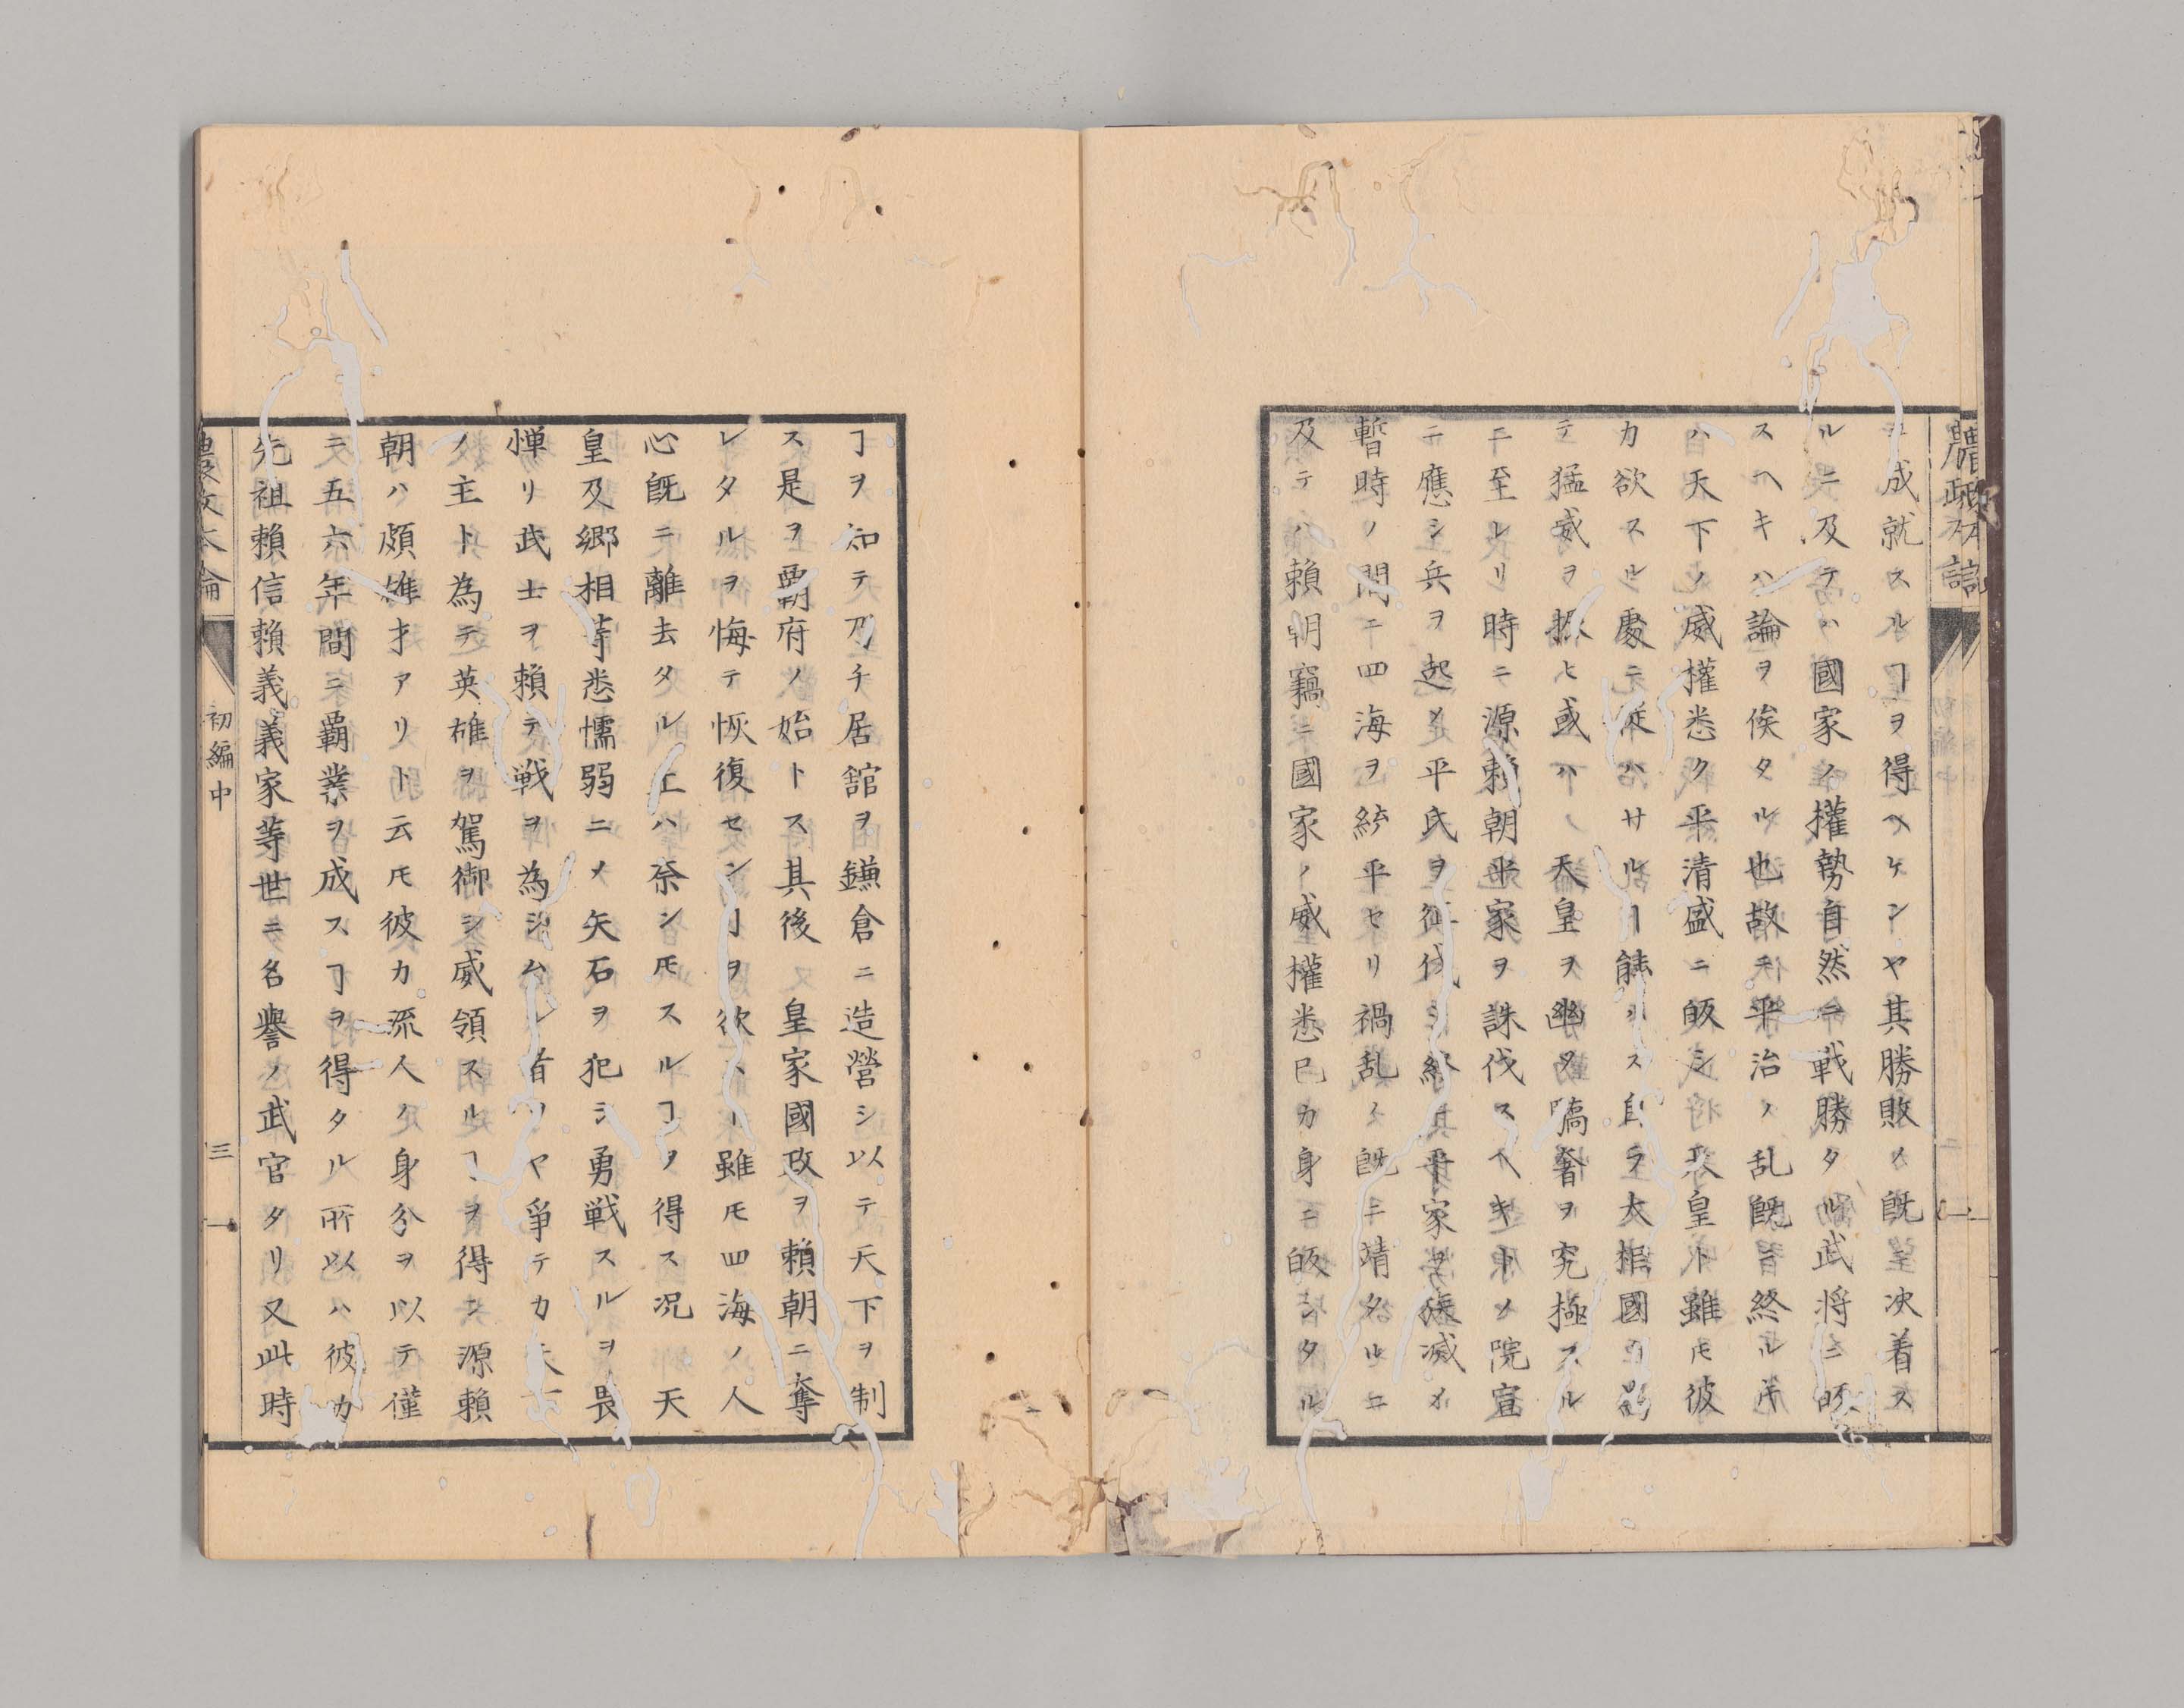 ヲ成就スルヿヲ得ヘケンヤ其勝敗メ既決着ス
ルニ及テハ國家ノ權勢自然ニ戦勝タル武将ニ皈
スヘキハ論ヲ俟タル也故ニ平治ノ乱既ニ終ル
ハ天下ノ威權悉ク平清盛ニ皈シ天皇ト雖モ彼
カ欲スル處ニ從ハサルヿ能ハス自ラ太相國
テ猛威ヲ振ヒ或ハ天皇ヲ幽タ驕奢ヲ究極スル
ニ至レリ時ニ源賴朝平家ヲ誅伐スヘキトノ院宣
ニ應シ兵ヲ起メ平氏ヲ征伐シ終ニ平家ヲ滅メ
暫時ノ間ニ四海ヲ統平セリ禍乱既ニ靖タルニ
及テハ賴朝竊ニ國家ノ威權悉已カ身ニ皈シタル
農政本論 初編中 三
ヿヲ知テ乃チ居舘ヲ鎌倉ニ造營シ以テ天下ヲ制
ス是ヲ覇府ノ始トス其後皇家國政ヲ賴朝ニ奪
レタルヲ悔テ恢復センヿヲ欲スト雖モ四海ノ人
心既ニ離去タル上ハ奈シモスルヿヲ得ス况天
皇及郷相等悉懦弱ニメ矢石ヲ犯シ勇戦スルヲ畏
憚リ武士ヲ賴テ戦ヲ為シムル者ヲヤ爭テカ天下
ノ主ト為テ英雄ヲ駕御シ威領スルヿヲ得ン源賴
朝ハ頗雄才アリト云モ彼カ流人タル身分ヲ以テ僅
ニ五六年間ニ覇業ヲ成スヿヲ得タル所以ハ彼カ
先祖賴信賴義義家等世ニ名譽ノ武官タリ又此時